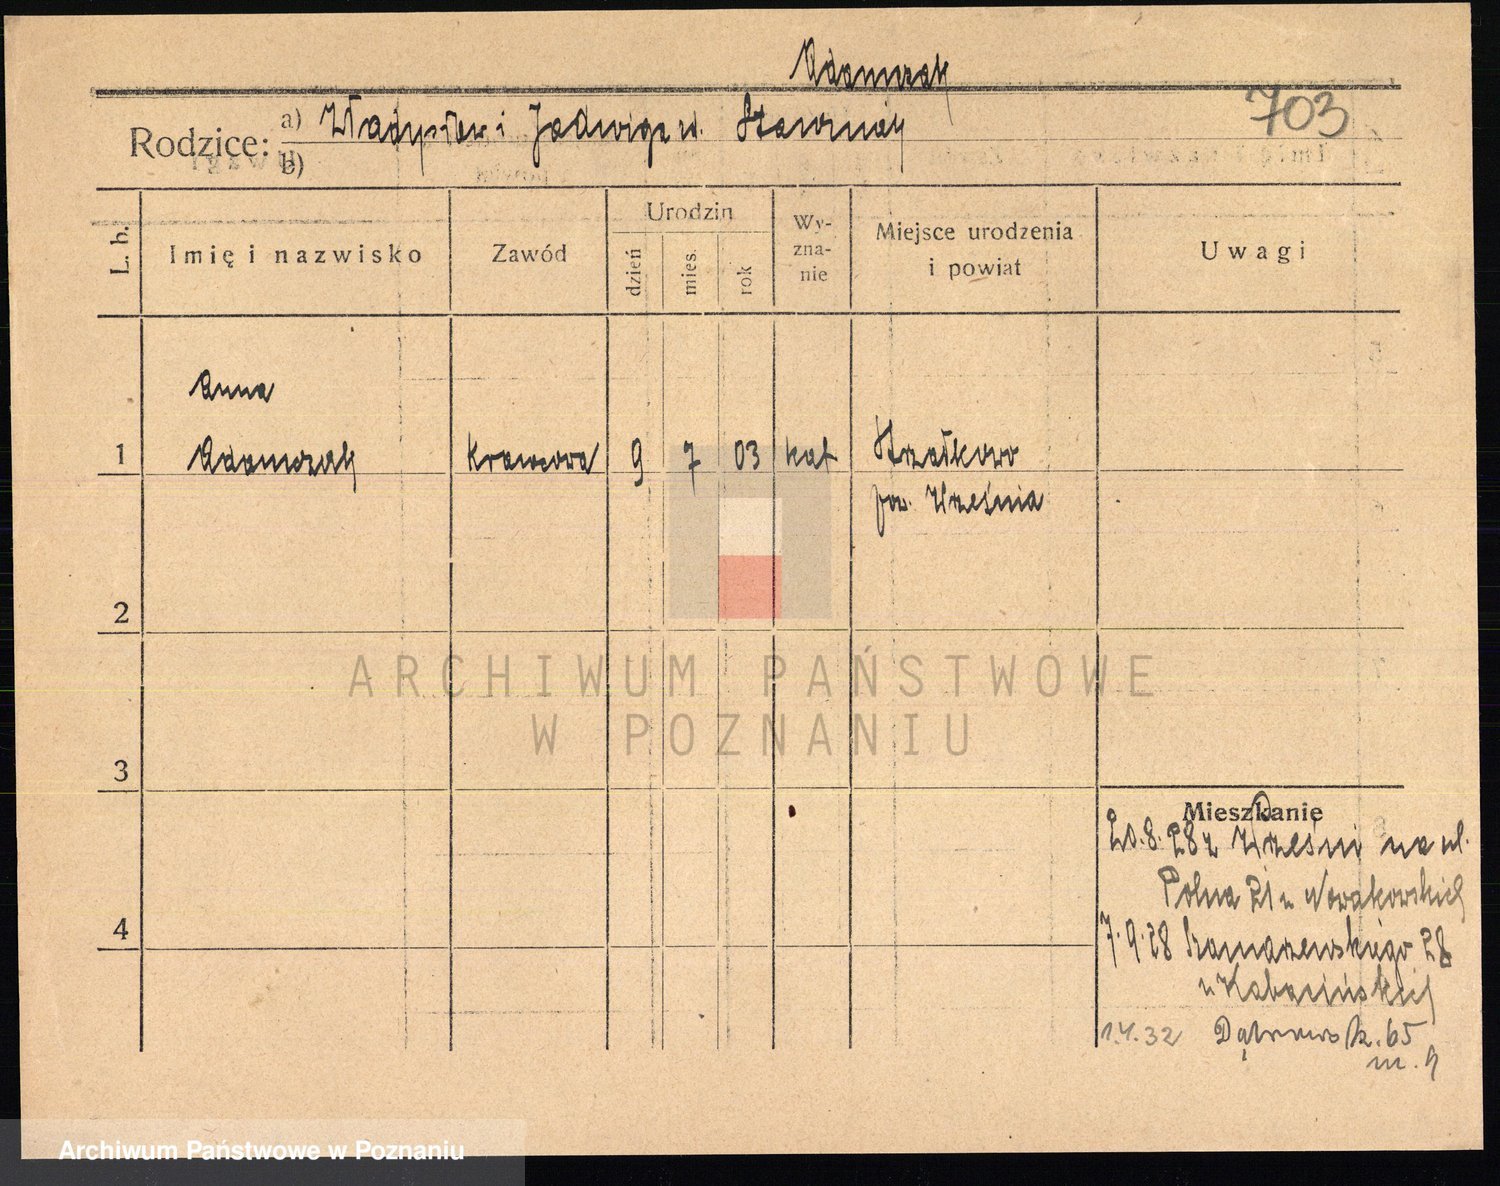 Adamczak
703
Rodzice: a) Władysław i Jadwiga ur.
b)
L. b.
Imię i nazwisko
Zawód
Urodzin
dzień
mies.
rok
Wy-
zna-
nie
Miejsce urodzenia
i powiat
Uwagi
Anna
1 Adamczak krawcowa 9 7 03 kat Strzałkowo
pow. Września
2
ARCHIWUM PAŃSTWOWE
W POZNANIU
3
Mieszkanie
20.8.28 z Wrześni na ul.
Polna 21 u Nowakowskich
4
7.9.28 Szamarzewskiego 28
u Kabacińskich
1.4.32 Dąbrowsk. 65
m. 9
Archiwum Państwowe w Poznaniu